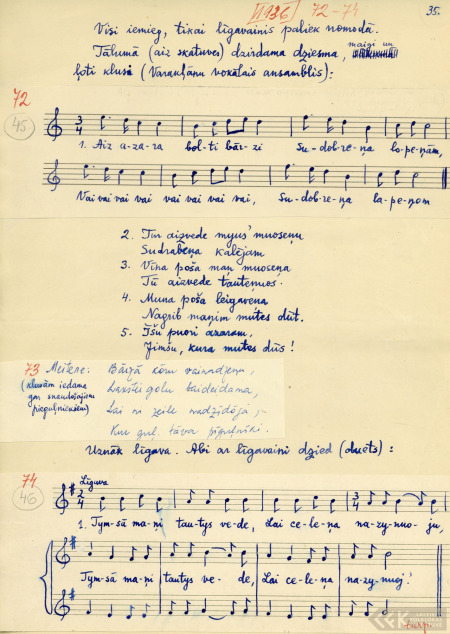 [1936] 72-74
35.
Visi iemieg, tikai līgavainis paliek nomodā.
Tālumā (aiz skatuves) dzirdama dziesma, maigi un
ļoti klusā (Varakļānu vokālais ansamblis):
72
45
3/4
1. Aiz a-za-ra bol-ti bār-zi Su-dob-re-ņa lo-pe-ņom,
Vai vai vai vai vai vai vai vai, Su-dob-re-ņa la-pe-ņom
2. Tur aizvede myus' muoseņu
Sudrabeņa kalējam
3. Vina poša man muoseņa
Tū aizvede tauteņuos.
4. Muna poša leigaveņa
Nagrib maņim mutes dūt.
5. Īšu puori azaram,
Jimšu, kura mutes dūs!
73 Meitene:
(klusām iedama
gar snaudošajām
pieguļniekiem)
Bārzā kōru vainadzeņu,
Lai ni zeile nadzīdōja,
Kur guļ tāva pīguļnīki.
Uznāk līgava. Abi ar līgavaini dzied (duets):
74
46
Līgava
2/4 3/4
1. Tym-sā ma-ņi tau-tys ve-de, Lai ce-le-ņa na-zy-nuo-ju,
Tym-sā ma-ņi tautys ve-de, Lai ce-le-ņa na-zy-nuoj!